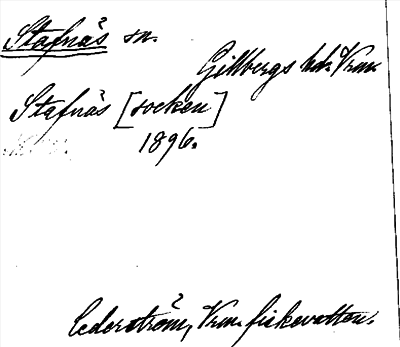 Stafnäs sn.
Gillbergs hd. Vrm.
Stafnäs [socken]
1896.
Cederström, Vrm. fiskevatten.